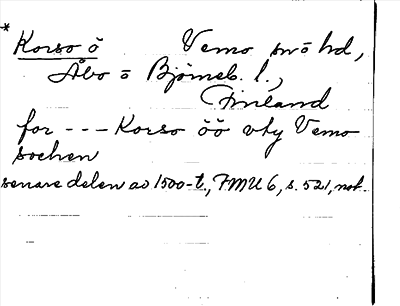 *
Korso ö Vemo sn ö hd,
Åbo o Björneb. l.,
Finland
for --- Korso öö vty Vemo
sochen
senare delen av 1500-t., FMU 6, s. 521, not.